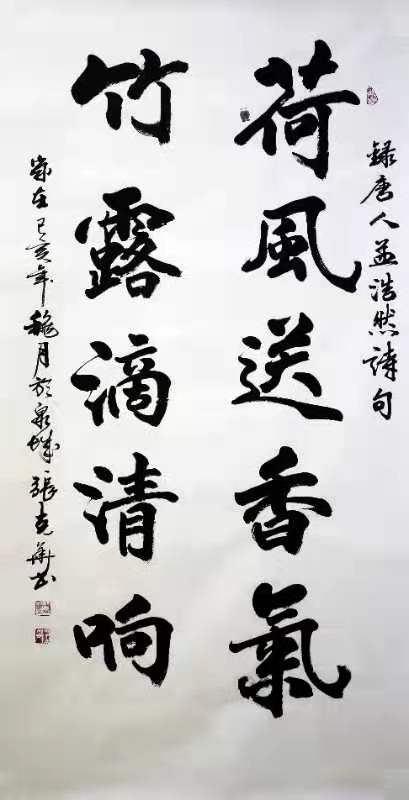 錄唐人孟浩然詩句
荷風送香氣
竹露滴清响
歲在己亥年穐月於泉城張克華书